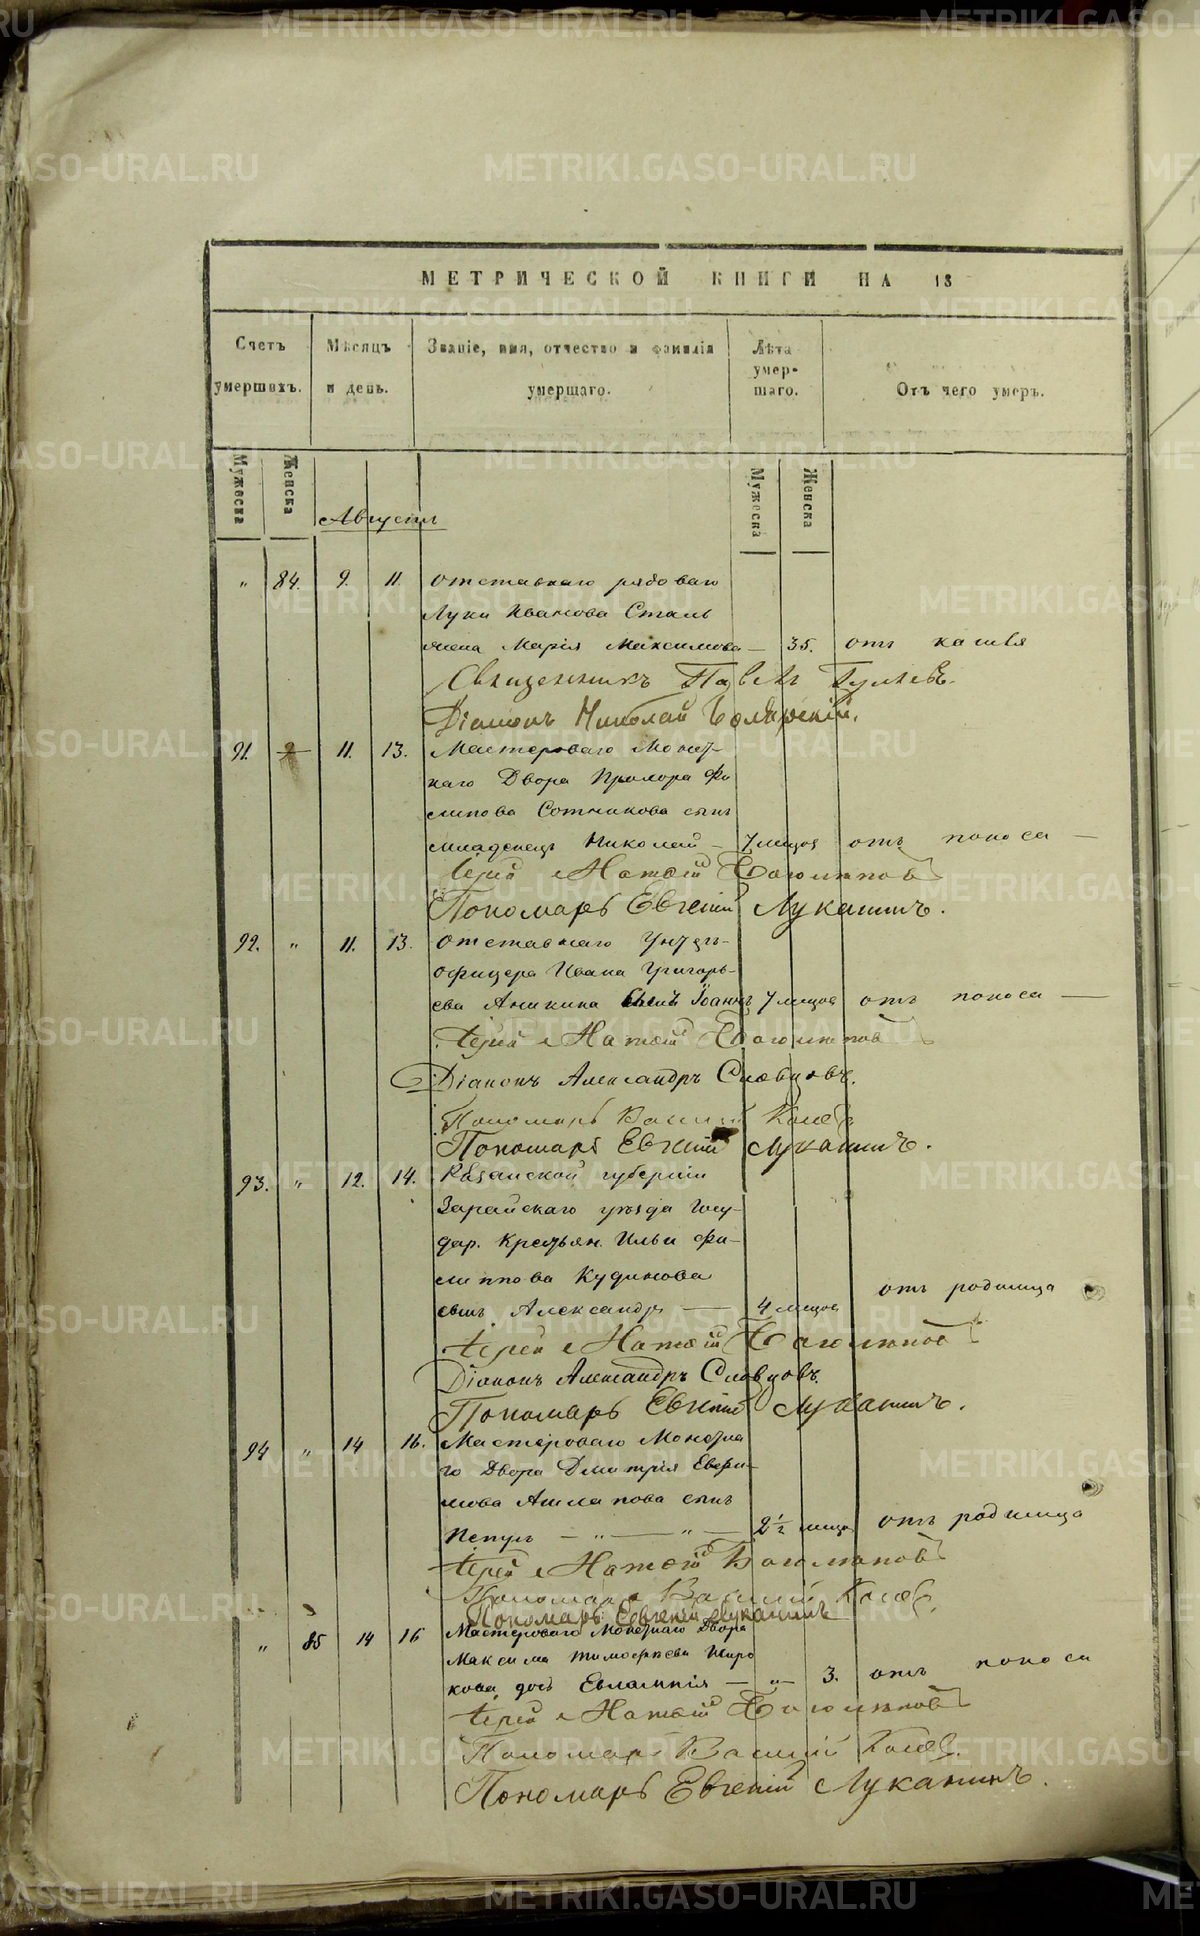 МЕТРИЧЕСКОЙ КНИГИ НА 18
Счетъ умершихъ.
Мѣсяцъ и день.
Званіе, имя, отчество и фамилія умершаго.
Лѣта умер-шаго.
Отъ чего умеръ.
Мужеска Женска
Мужеска Женска
Августъ
" 84. 9. 11. Отставнаго рядоваго
Луки Иванова
жена Марія Максимова — 35. отъ кашля
Священникъ Павелъ
Діаконъ Николай
91. 11. 13. Мастероваго Монет-
наго Двора Фи
липова Сотникова сынъ
младенецъ Николай — 7 мѣсяц отъ поноса —
Іерей
Пономарь Евгеній Луканинъ.
92. " 11. 13. Отставнаго Унтеръ-
офицера Ивана Григорь-
ева Аникина сынъ Іоаннъ 7 мѣсяц отъ поноса —
Іерей
Діаконъ Александръ Словцовъ.
Пономарь Василій
Пономарь Евгеній Луканинъ.
93. " 12. 14. Рязанской губерніи
Зарайскаго уѣзда Госу-
дар. Крестьян. Ильи Фи-
липпова Кудинова
сынъ Александръ — 4 мѣсяц отъ родимца
Іерей
Діаконъ Александръ Словцовъ.
Пономарь Евгеній Луканинъ.
94 " 14 16. Мастероваго Монетна
го Двора Дмитрія Евфи-
мова сынъ
Петръ — " — " — 2 1/2 мѣсяц отъ родимца
Іерей
Пономарь Василій
Пономарь Евгеній Луканинъ
" 85 14 16 Мастероваго Монетнаго Двора
Максима Тимофѣева
кова дочь Евлампія — " — 3. отъ поноса
Іерей
Пономарь Василій
Пономарь Евгеній Луканинъ.
METRIKI.GASO-URAL.RU